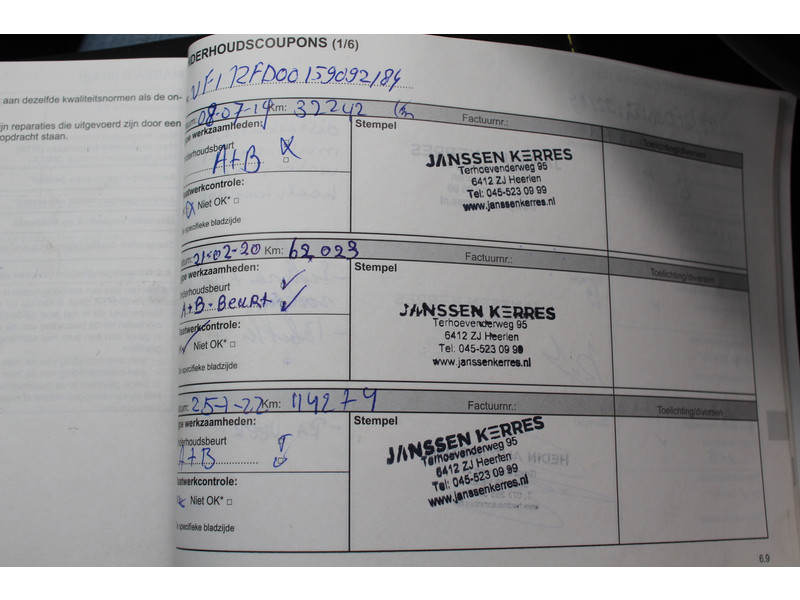 aan dezelfde kwaliteitsnormen als de on-
jn reparaties die uitgevoerd zijn door een
opdracht staan.
DERHOUDSCOUPONS (1/6)
VF1RFD00159092184
08-07-19 Km: 32242 Km Factuurnr.:
pe werkzaamheden:
Stempel
Toelichting/diversen
nderhoudsbeurt
A+B
JANSSEN KERRES
Terhoevenderweg 95
6412 ZJ Heerlen
Tel: 045-523 09 99
www.janssenkerres.nl
aatwerkcontrole:
Niet OK* □
specifieke bladzijde
21-02-20 Km: 62.023 Factuurnr.:
pe werkzaamheden:
Stempel
Toelichting/diversen
nderhoudsbeurt
A+B-Beurt
JANSSEN KERRES
Terhoevenderweg 95
6412 ZJ Heerlen
Tel: 045-523 09 99
www.janssenkerres.nl
aatwerkcontrole:
Niet OK* □
specifieke bladzijde
25-7-22 Km: 114274 Factuurnr.:
pe werkzaamheden:
Stempel
Toelichting/diversen
nderhoudsbeurt
A+B
JANSSEN KERRES
Terhoevenderweg 95
6412 ZJ Heerlen
Tel: 045-523 09 99
www.janssenkerres.nl
aatwerkcontrole:
Niet OK* □
specifieke bladzijde
6.9